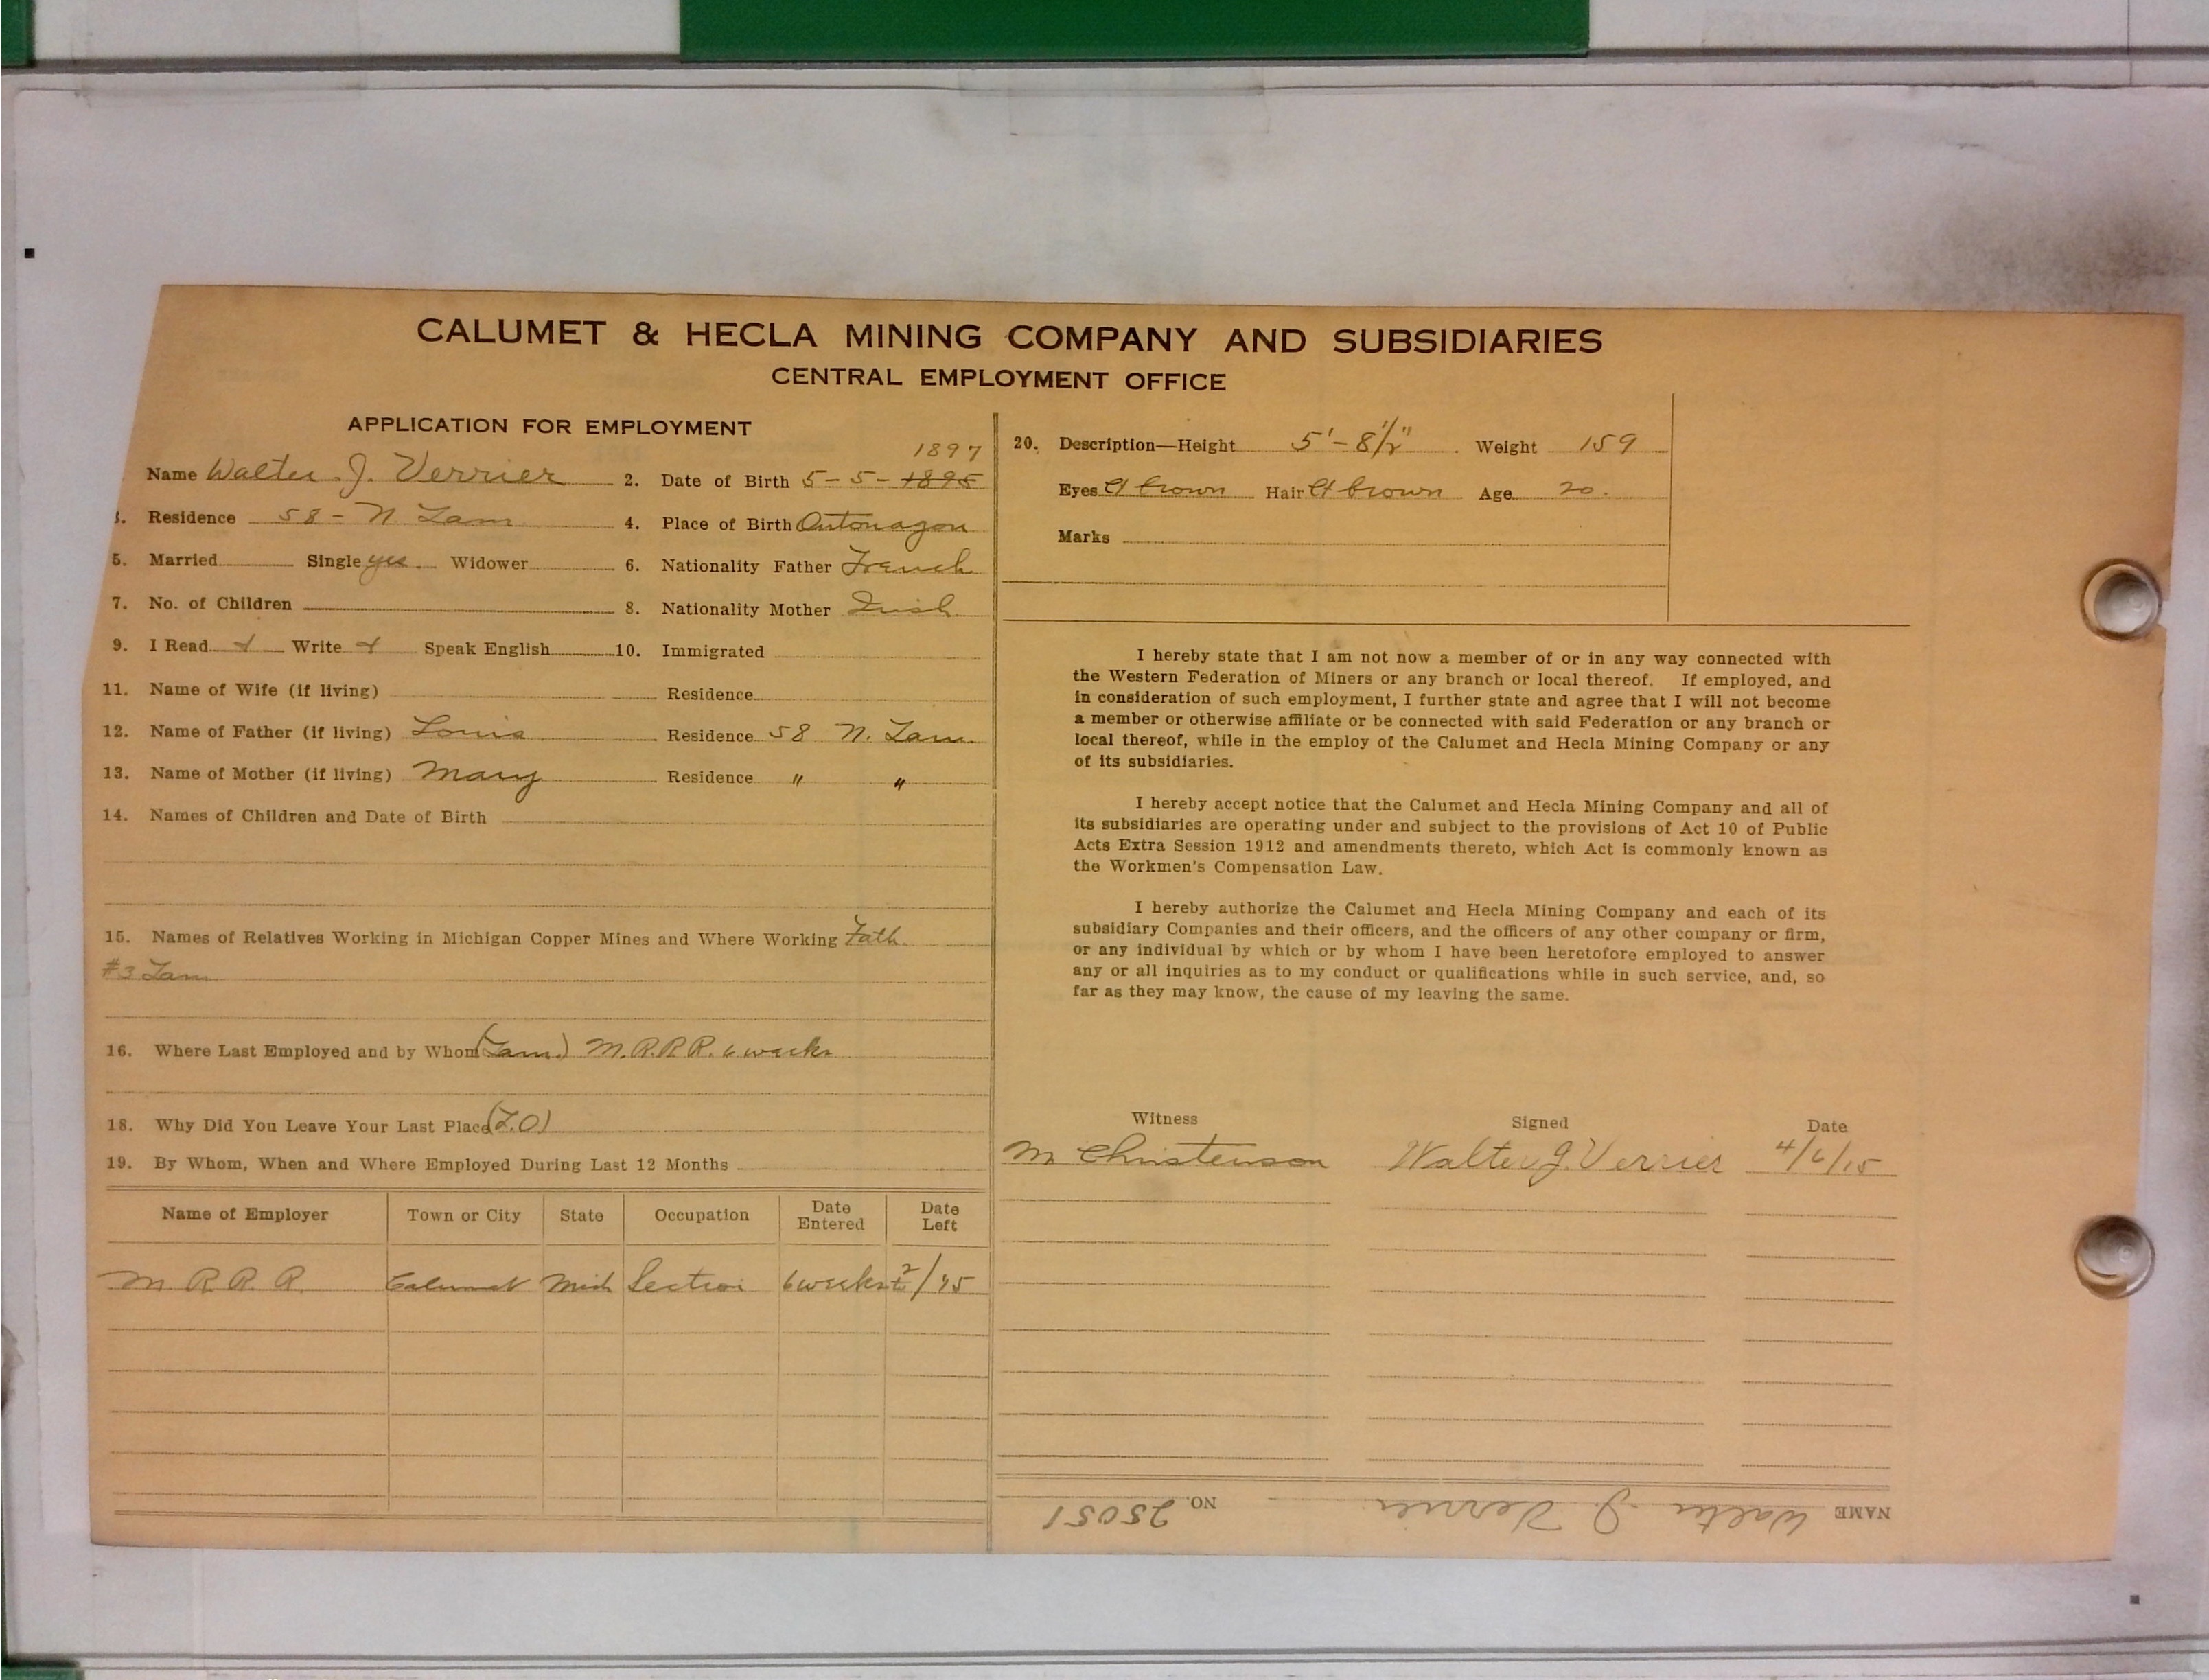 CALUMET & HECLA MINING COMPANY AND SUBSIDIARIES
CENTRAL EMPLOYMENT OFFICE
APPLICATION FOR EMPLOYMENT
1897
Name Walter J. Verrier 2. Date of Birth 5-5-1895
3. Residence 58 - N. Lam 4. Place of Birth Ontonagon
5. Married Single yes Widower 6. Nationality Father French
7. No. of Children 8. Nationality Mother Irish
9. I Read Write Speak English 10. Immigrated
11. Name of Wife (if living) Residence
12. Name of Father (if living) Louis Residence 58 N. Lam.
13. Name of Mother (if living) Mary Residence " "
14. Names of Children and Date of Birth
15. Names of Relatives Working in Michigan Copper Mines and Where Working Fath
#3 Lam
16. Where Last Employed and by Whom (Lam.) M.R.R.R. 6 weeks
18. Why Did You Leave Your Last Place (L.O)
19. By Whom, When and Where Employed During Last 12 Months
Name of Employer Town or City State Occupation Date Entered Date Left
M R.R.R. Calumet Mich Section 6 weeks 2/15
20. Description—Height 5'-8 1/2" Weight 159
Eyes brown Hair brown Age 20.
Marks
I hereby state that I am not now a member of or in any way connected with
the Western Federation of Miners or any branch or local thereof. If employed, and
in consideration of such employment, I further state and agree that I will not become
a member or otherwise affiliate or be connected with said Federation or any branch or
local thereof, while in the employ of the Calumet and Hecla Mining Company or any
of its subsidiaries.
I hereby accept notice that the Calumet and Hecla Mining Company and all of
its subsidiaries are operating under and subject to the provisions of Act 10 of Public
Acts Extra Session 1912 and amendments thereto, which Act is commonly known as
the Workmen's Compensation Law.
I hereby authorize the Calumet and Hecla Mining Company and each of its
subsidiary Companies and their officers, and the officers of any other company or firm,
or any individual by which or by whom I have been heretofore employed to answer
any or all inquiries as to my conduct or qualifications while in such service, and, so
far as they may know, the cause of my leaving the same.
Witness Signed Date
M Christenson Walter J. Verrier 4/6/15
NAME Walter J. Verrier NO. 25051